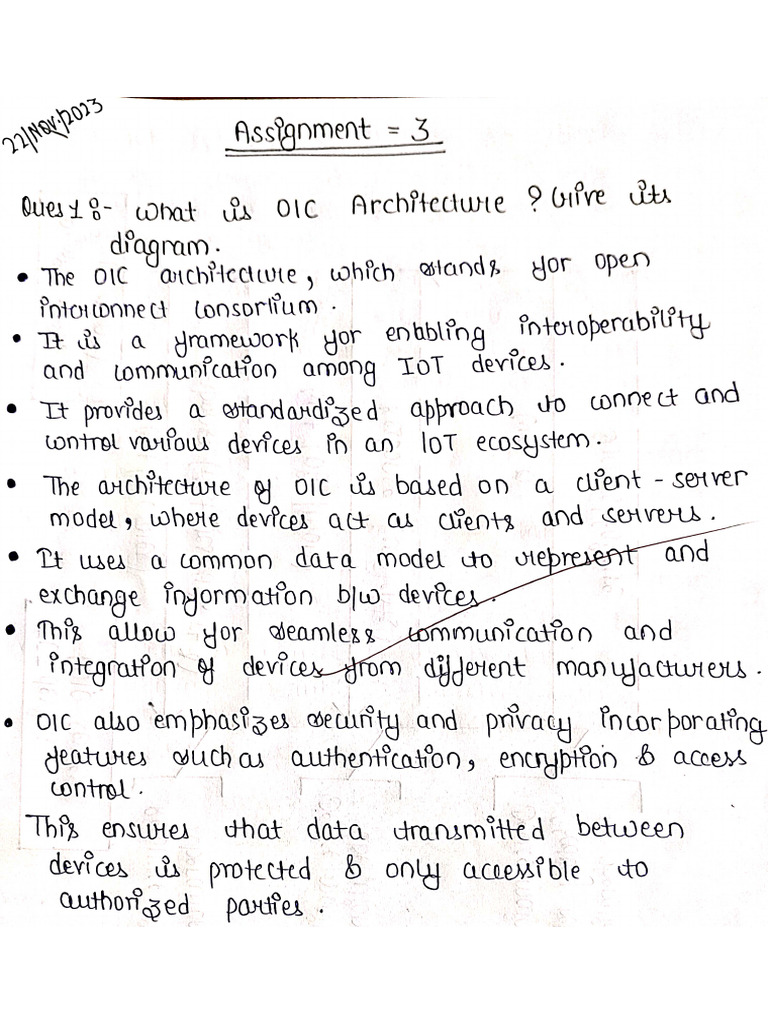 22/Nov./2023
Assignment = 3
Ques 1 :- What is OIC Architecture ? Give its
diagram.
• The OIC architecture, which stands for open
interconnect consortium.
• It is a framework for enabling interoperability
and communication among IOT devices.
• It provides a standardized approach to connect and
control various devices in an IoT ecosystem.
• The architecture of OIC is based on a client - server
model, where devices act as clients and servers.
• It uses a common data model to represent and
exchange information b/w devices.
• This allow for seamless communication and
integration of devices from different manufacturers.
• OIC also emphasizes security and privacy incorporating
features such as authentication, encryption & access
control.
This ensures that data transmitted between
devices is protected & only accessible to
authorized parties.